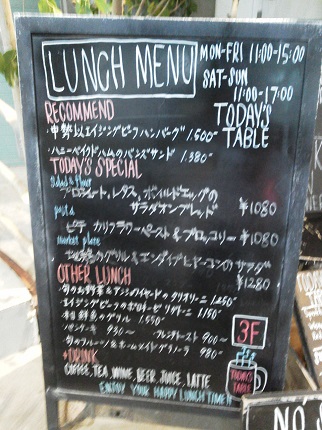 LUNCH MENU
MON-FRI 11:00-15:00
SAT-SUN
11:00-17:00
TODAY'S
TABLE
RECOMMEND
エイジングビーフハンバーグ 1,600-
ハニーベイクドハムのバンズサンド 1,380-
TODAY'S SPECIAL
salad & flour
プロシュート、レタス、ボイルドエッグの
サラダオンブレッド ¥1080
pasta
カリフラワーペースト&ブロッコリー ¥1080
market plate
のグリル&エンダイブとベーコンのサラダ ¥1280
OTHER LUNCH
旬のお野菜&アンチョビ 1,250-
エイジングビーフのボロネーゼ リガトーニ 1,150-
鮮魚のグリル
パンケーキ 930~ フレンチトースト 900~
旬のフルーツ&ホームメイドグラノーラ 980-
+DRINK
COFFEE, TEA, WINE, BEER, JUICE, LATTE
ENJOY YOUR HAPPY LUNCH TIME!!
3F
TODAY'S
TABLE
NO'S